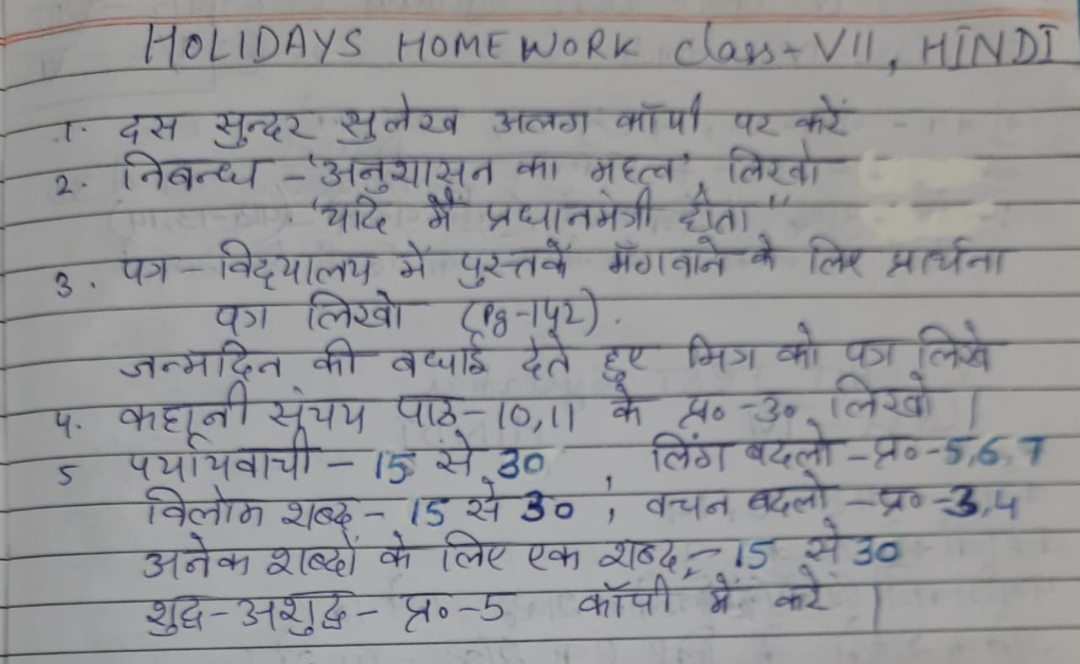 HOLIDAYS HOMEWORK Class - VII, HINDI
1. दस सुन्दर सुलेख अलग कॉपी पर करें
2. निबन्ध - 'अनुशासन का महत्व', लिखो
'यदि मैं प्रधानमंत्री होता"
3. पत्र - विद्यालय में पुस्तकें मँगवाने के लिए प्रार्थना
पत्र लिखो (Pg-142).
जन्मदिन की बधाई देते हुए मित्र को पत्र लिखे
4. कहानी संचय पाठ - 10,11 के प्र० - उ० लिखो |
5 पर्यायवाची - 15 से 30 , लिंग बदलो - प्र० - 5,6,7
विलोम शब्द - 15 से 30 ; वचन बदलो - प्र० - 3,4
अनेक शब्दों के लिए एक शब्द - 15 से 30
शुद्ध - अशुद्ध - प्र० - 5 कॉपी में करें |